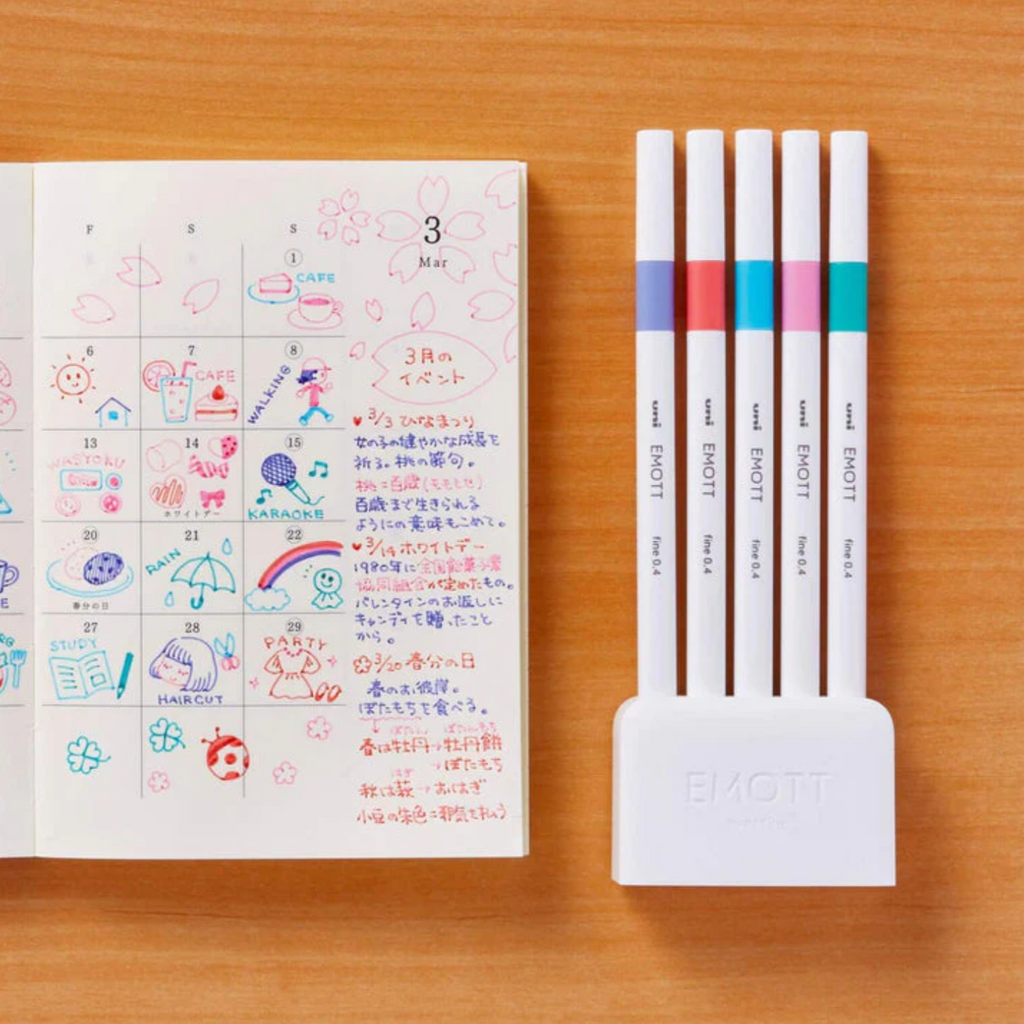 F S S
3
Mar
① CAFE
6 7 ⑧
CAFE
WALKING
13 14 ⑮
WASYOKU
ホワイトデー
KARAOKE
⑳ 21 ㉒
春分の日
RAIN
27 28 ㉙
STUDY
HAIRCUT
PARTY
3月の
イベント
♥3/3 ひなまつり
女の子の健やかな成長を
祈る。桃の節句。
桃=百歳(ももとせ)
百歳まで生きられる
ようにの意味もこめて。
♥3/14 ホワイトデー
1980年に全国飴菓子業
協同組合が定めたもの。
バレンタインのお返しに
キャンディを贈ったこと
から。
3/20 春分の日
春のお彼岸。
ぼたもちを食べる。
ぼたん ぼたんもち
春は牡丹→牡丹餅
→ぼたもち
はぎ
秋は萩→おはぎ
小豆の朱色=邪気を払う
uni EMOTT fine 0.4
uni EMOTT fine 0.4
uni EMOTT fine 0.4
uni EMOTT fine 0.4
uni EMOTT fine 0.4
EMOTT